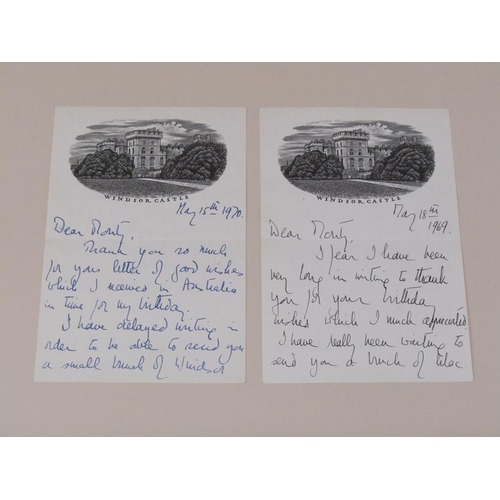 WINDSOR CASTLE
May 15th 1970.
Dear Monty,
Thank you so much
for your letter of good wishes
which I received in Australia
in time for my birthday.
I have delayed writing in
order to be able to send you
a small bunch of Windsor
WINDSOR CASTLE
May 18th
1969.
Dear Monty,
I fear I have been
very long in writing to thank
you for your birthday
wishes which I much appreciated
I have really been waiting to
send you a bunch of lilac